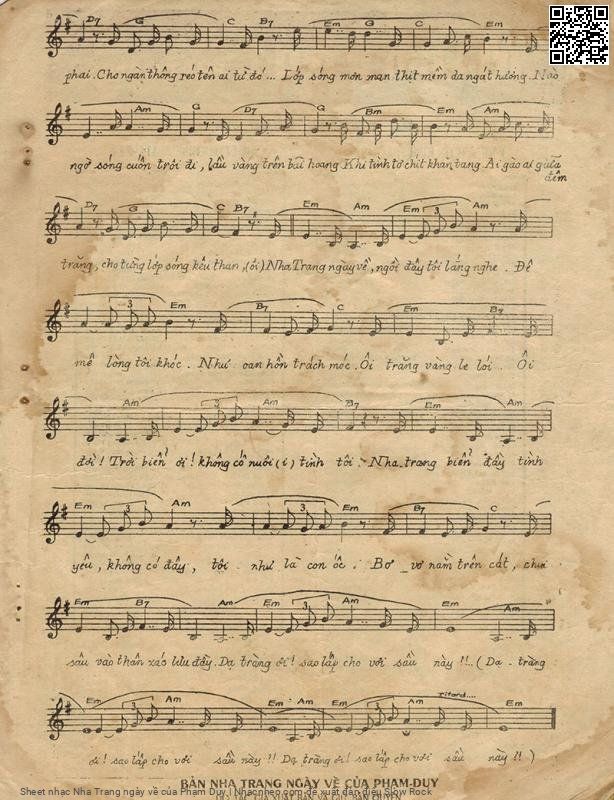 D7 G C B7 Em G C Em
phai. Cho ngàn thông réo tên ai từ đó... Lớp sóng mơn man thịt mềm da ngát hương. Nao
Am G D7 G Bm Em Am
ngờ sóng cuốn trôi đi, lâu vàng trên bãi hoang Khi tình tơ chít khăn tang Ai gào ai giữa
đêm
D7 G C B7 Em Am Em Am
trăng, cho từng lớp sóng kêu than, (ôi) Nha Trang ngày về, ngồi đây tôi lắng nghe. Đê
Em B7 C Em B7
mê lòng tôi khóc. Như oan hồn trách móc. Ôi trăng vàng le lói... Ôi
Am Am B7 Em Am
đời! Trời biển ơi! không có nuôi (i) tình tôi. Nha_trang biển đầy tình
Em Am Em Em B7 C
yêu, không có đây, tôi như là con ốc. Bơ_vơ nằm trên cát, chui
Em B7 Am Em Am Em
sâu vào thân xác lưu đầy. Dạ tràng ơi! sao lấp cho vơi sầu này!!.. (Dạ - tràng
Em Am Em Am Em Am ritard.... Em
ơi! sao lấp cho vơi sầu này!! Dạ tràng ơi! sao lấp cho vơi sầu này!!)
BẢN NHA TRANG NGÀY VỀ CỦA PHẠM-DUY
Sheet nhạc Nha Trang ngày về của Phạm Duy | Nhacnheo.com đề xuất dân điệu Slow Rock